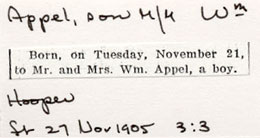 Appel, son M/M Wm
Born, on Tuesday, November 21,
to Mr. and Mrs. Wm. Appel, a boy.
Hooper
St 27 Nov 1905 3:3